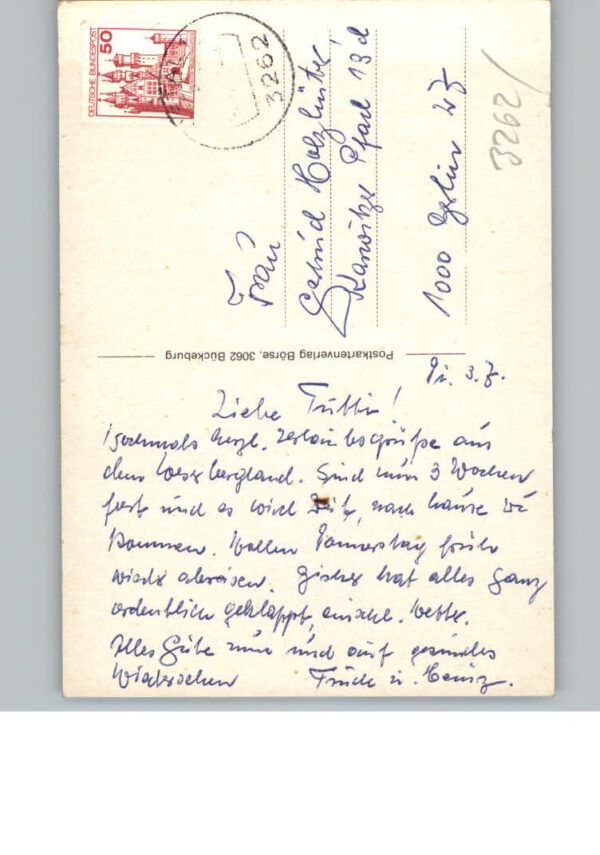 DEUTSCHE BUNDESPOST
50
3262
3262
Frau
Holzhüter
Pfad 13 d
1000 Berlin 27
Postkartenverlag Börse, 3062 Bückeburg
Di. 3.7.
Liebe
Nochmals herzl. Urlaubsgrüße aus
dem Weserbergland. Sind nun 3 Wochen
fast und es wird Zeit, nach Hause zu
kommen. Wollen Donnerstag früh
wieder abreisen. Bisher hat alles ganz
ordentlich geklappt, einschl. Wetter.
Alles Gute nun und auf gesundes
Wiedersehen Trude u. Heinz.